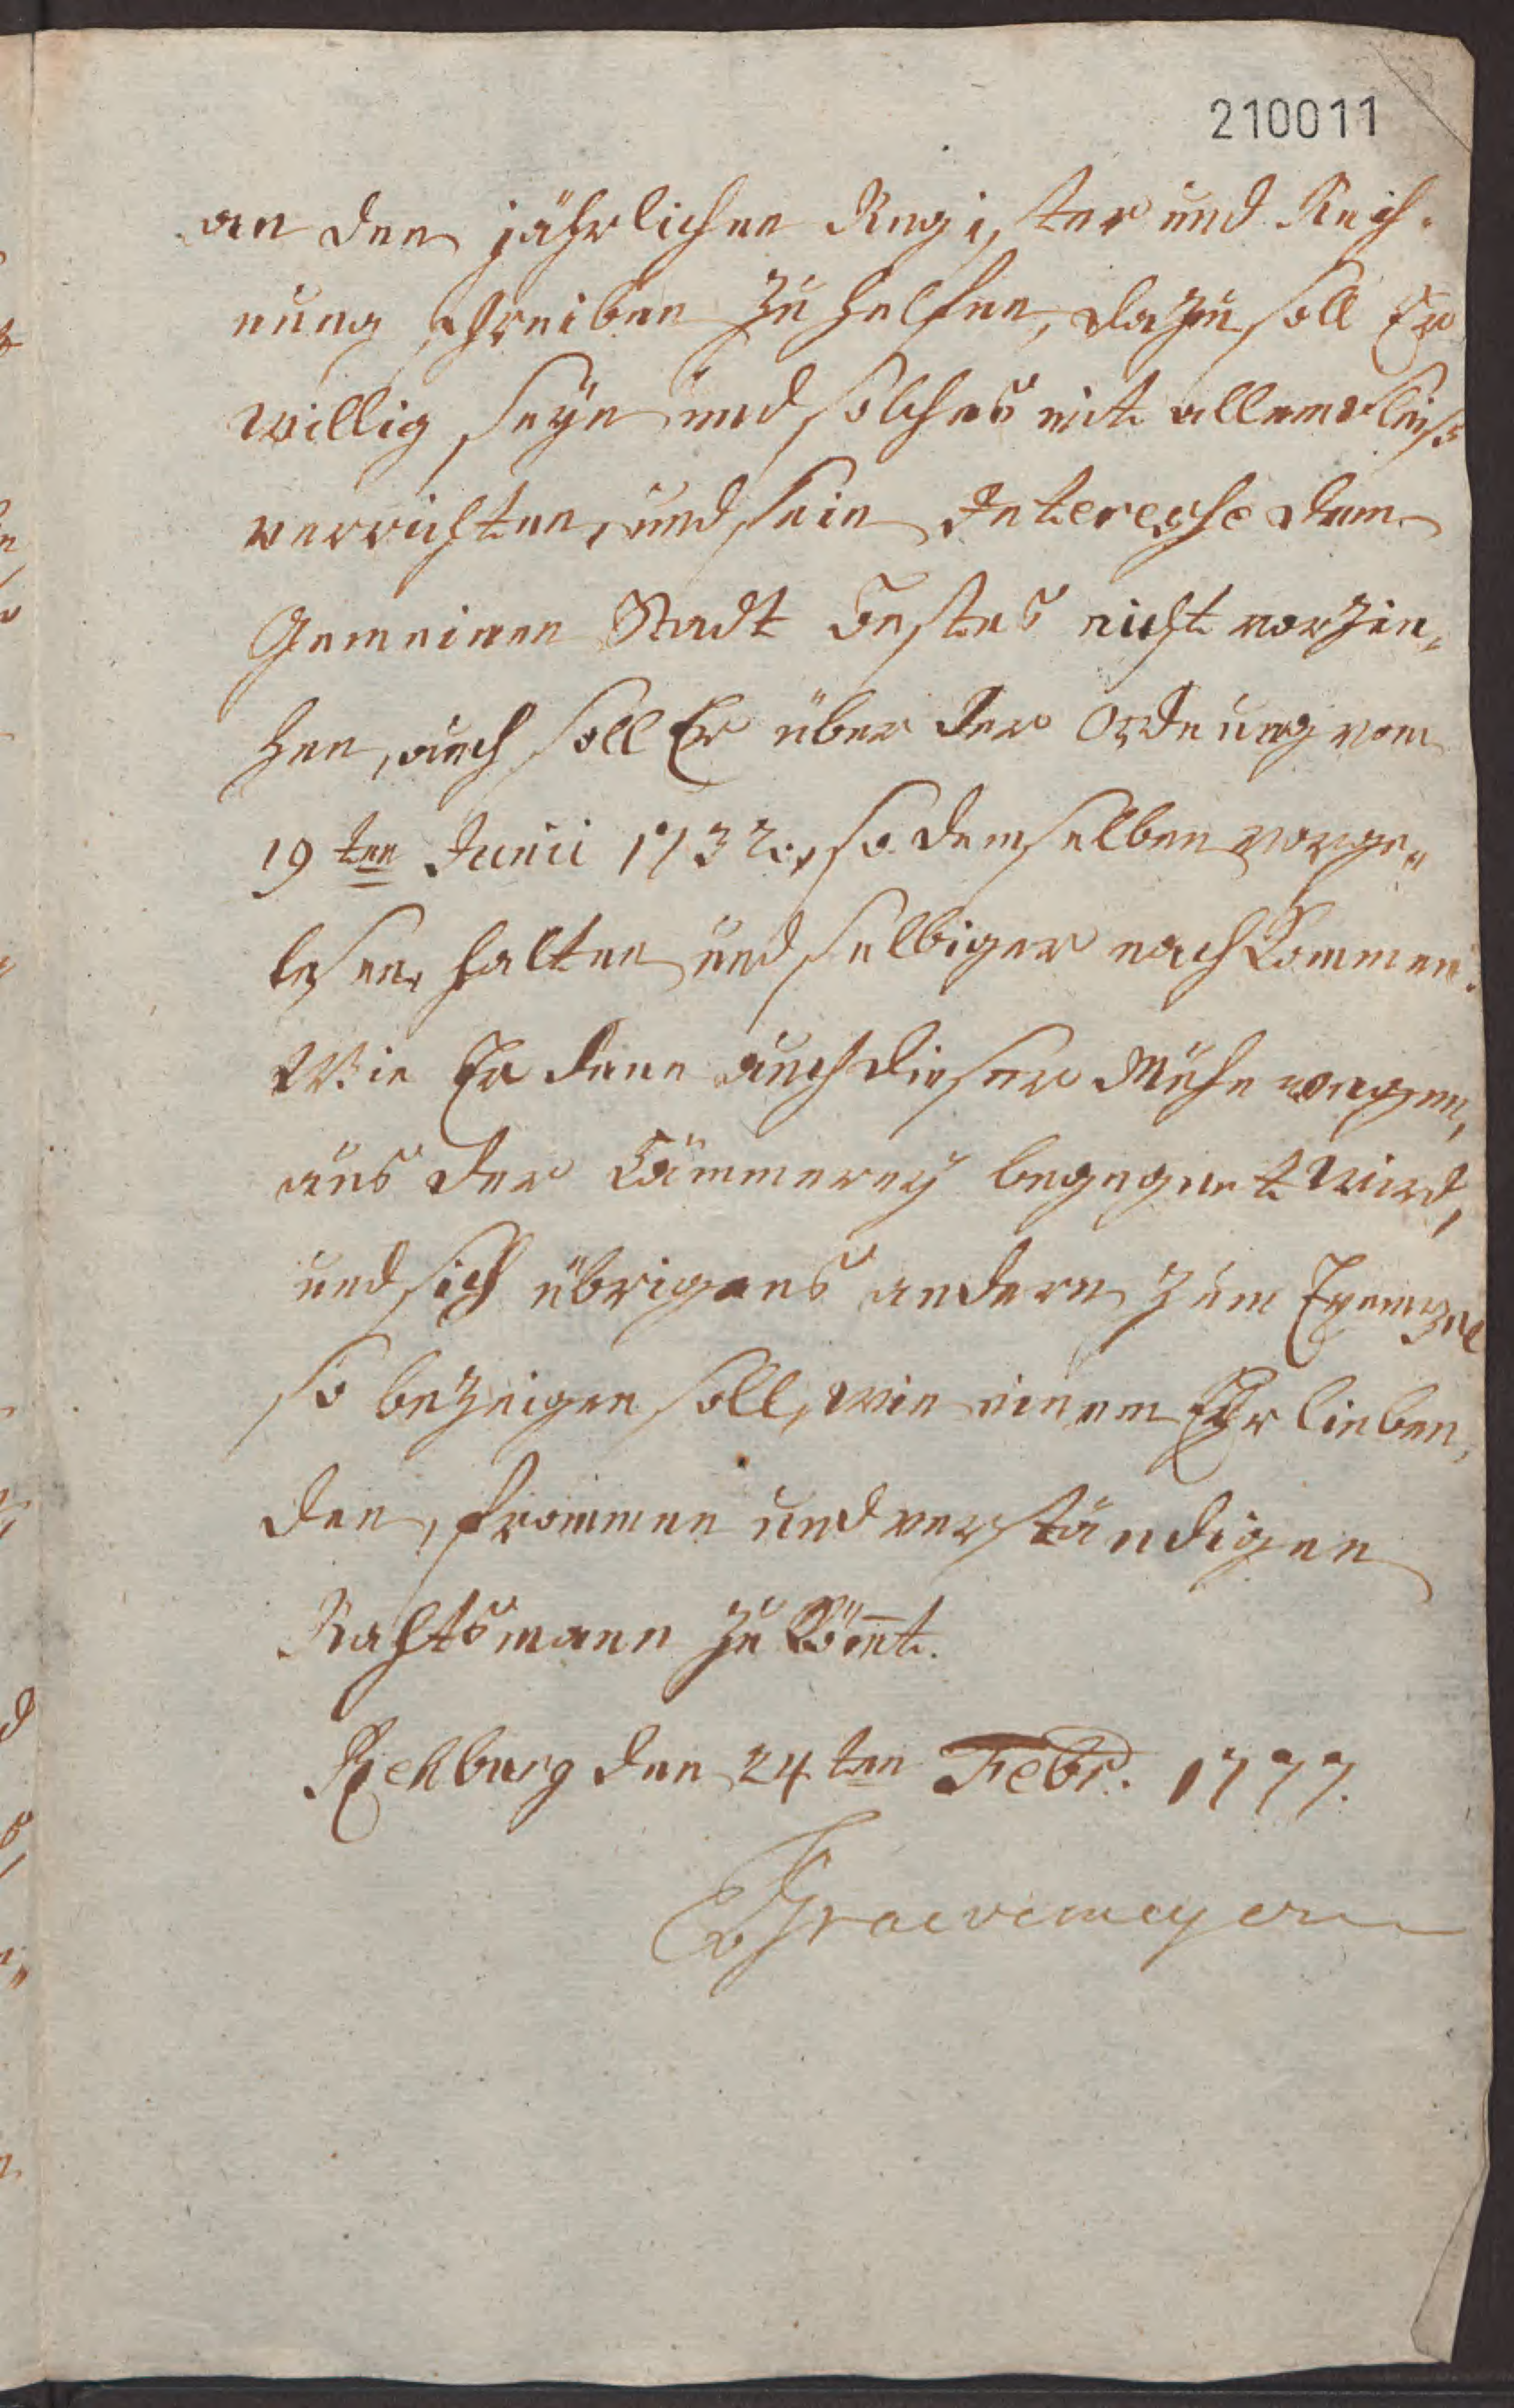 210011
an den jährlichen Register und Rech-
nung schreiben zu helfen, dazu soll Er
willig seyn und solches mit allem Fleiß
verrichten, und sein Interesse dem
Gemeinen Stadt Bestes nicht vorzie-
hen, auch soll Er über der Ordnung vom
19ten Junii 1732., so demselben vorge-
lesen, halten und selbiger nachkommen.
Wie Er denn auch dieser Mühe wegen,
aus der Cämmerey begegnet wird,
und sich übrigens andern zum Exempel
so bezeigen soll, wie einem Ehrlieben-
den, frommen und verständigen
Rahtsmann zu kömt.
Rehburg den 24ten Febr. 1777.
Graevemeyer